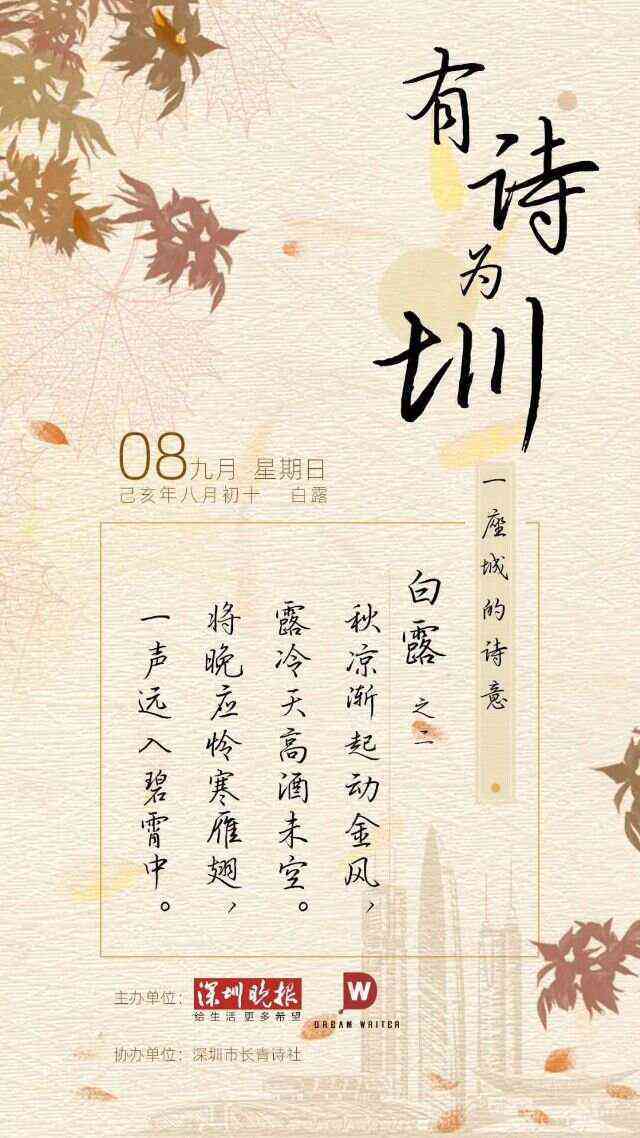 有诗为圳
一座城的诗意
08九月 星期日
己亥年八月初十 白露
白露 之二
秋凉渐起动金风，
露冷天高酒未空。
将晚应怜寒雁翅，
一声远入碧霄中。
主办单位：深圳晚报
给生活更多希望
DW
DREAM WRITER
协办单位：深圳市长青诗社